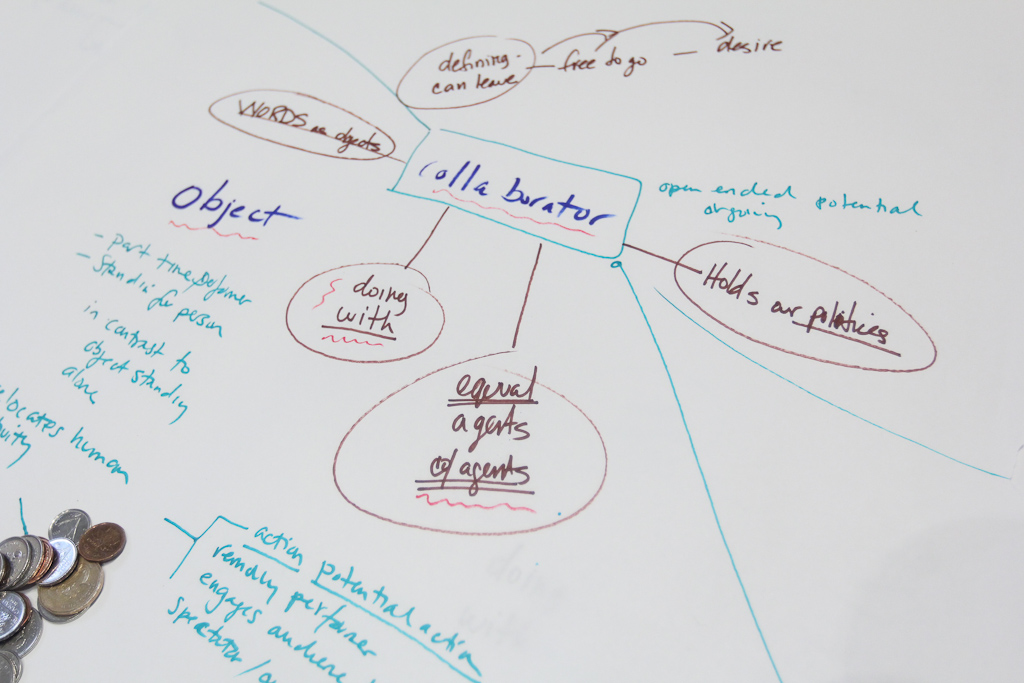 defining -
can leave — free to go — desire
WORDS as objects
Collaborator
open ended potential
ongoing
Object
- part time performer
- Standin for person
in contrast to
object standing
alone
locates human
doing
with
Holds our politics
equal
agents
agents
action potential action
performer
engages audience
spectator/